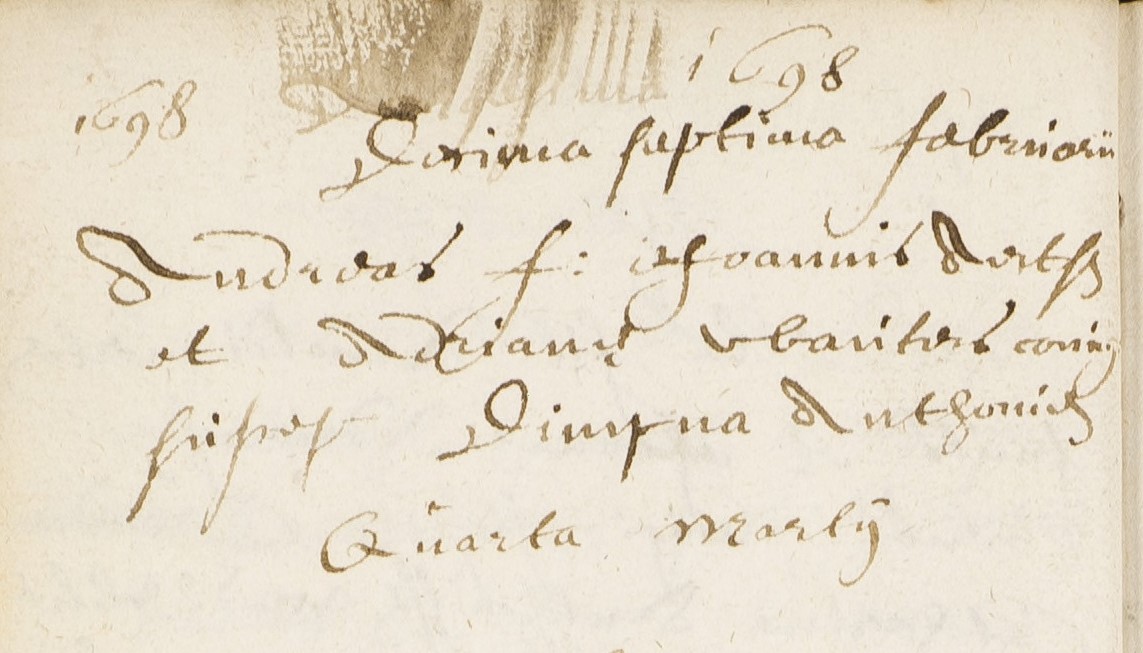 1698
1698
Decima septima februarii
Andreas f: Joannis Aerts
et Adriana wbanters coniug
suscep Dimpna Anthonis
Quarta Martij